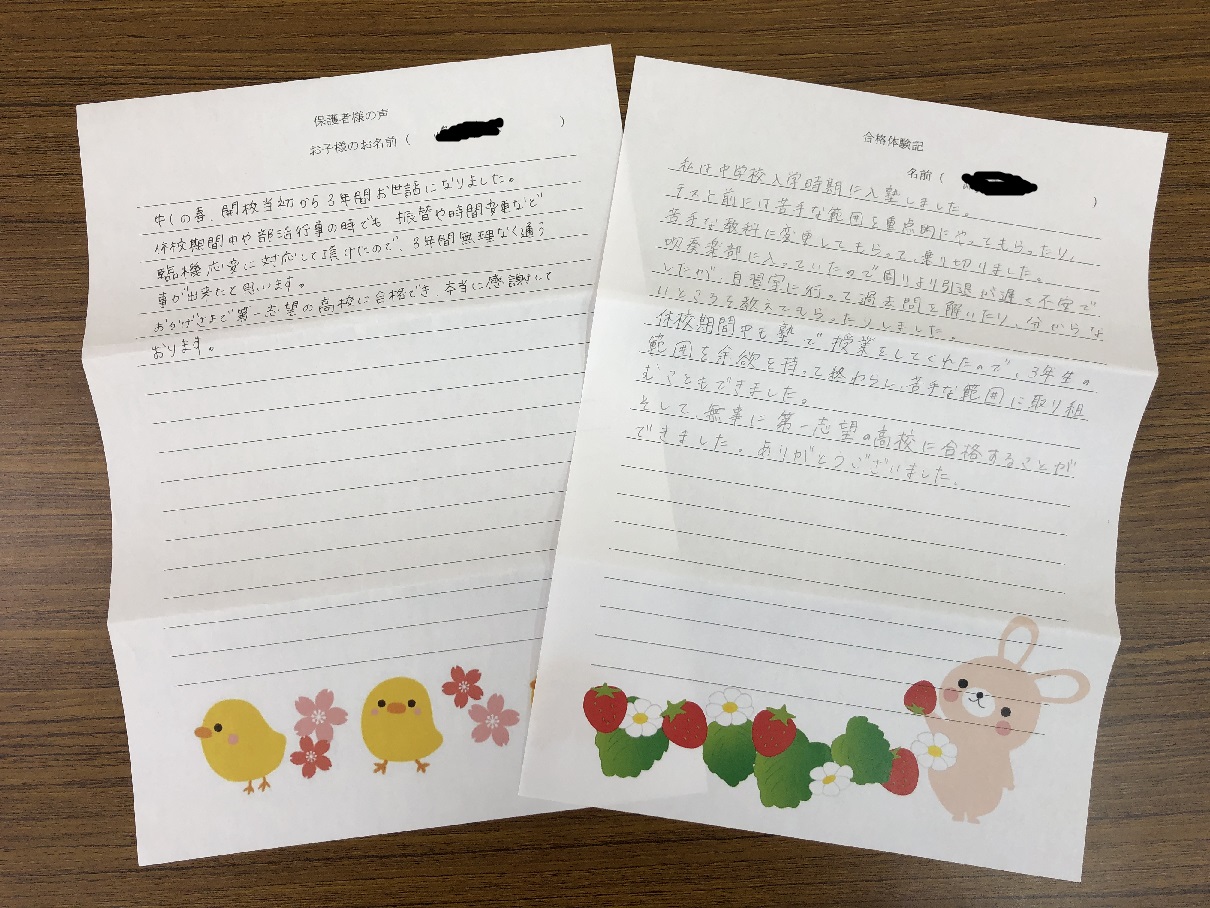 保護者様の声
お子様のお名前（ ）
中1の春 開校当初から3年間お世話になりました。
休校期間中や部活行事の時でも 振替や時間変更など
臨機応変に対応して頂けたので、3年間無理なく通う
事が出来たと思います。
おかげさまで第一志望の高校に合格でき、本当に感謝して
おります。
合格体験記
名前（ ）
私は中学校入学時期に入塾しました。
テスト前には苦手な範囲を重点的にやってもらったり、
苦手な教科に変更してもらって、乗り切りました。
吹奏楽部に入っていたので周りより引退が遅く不安で
したが、自習室に行って過去問を解いたり、分からな
いところを教えてもらったりしました。
休校期間中も塾で授業をしてくれたので、3年生の
範囲を余欲を持って終わらし、苦手な範囲に取り組
むこともできました。
そして、無事に第一志望の高校に合格することが
できました。ありがとうございました。